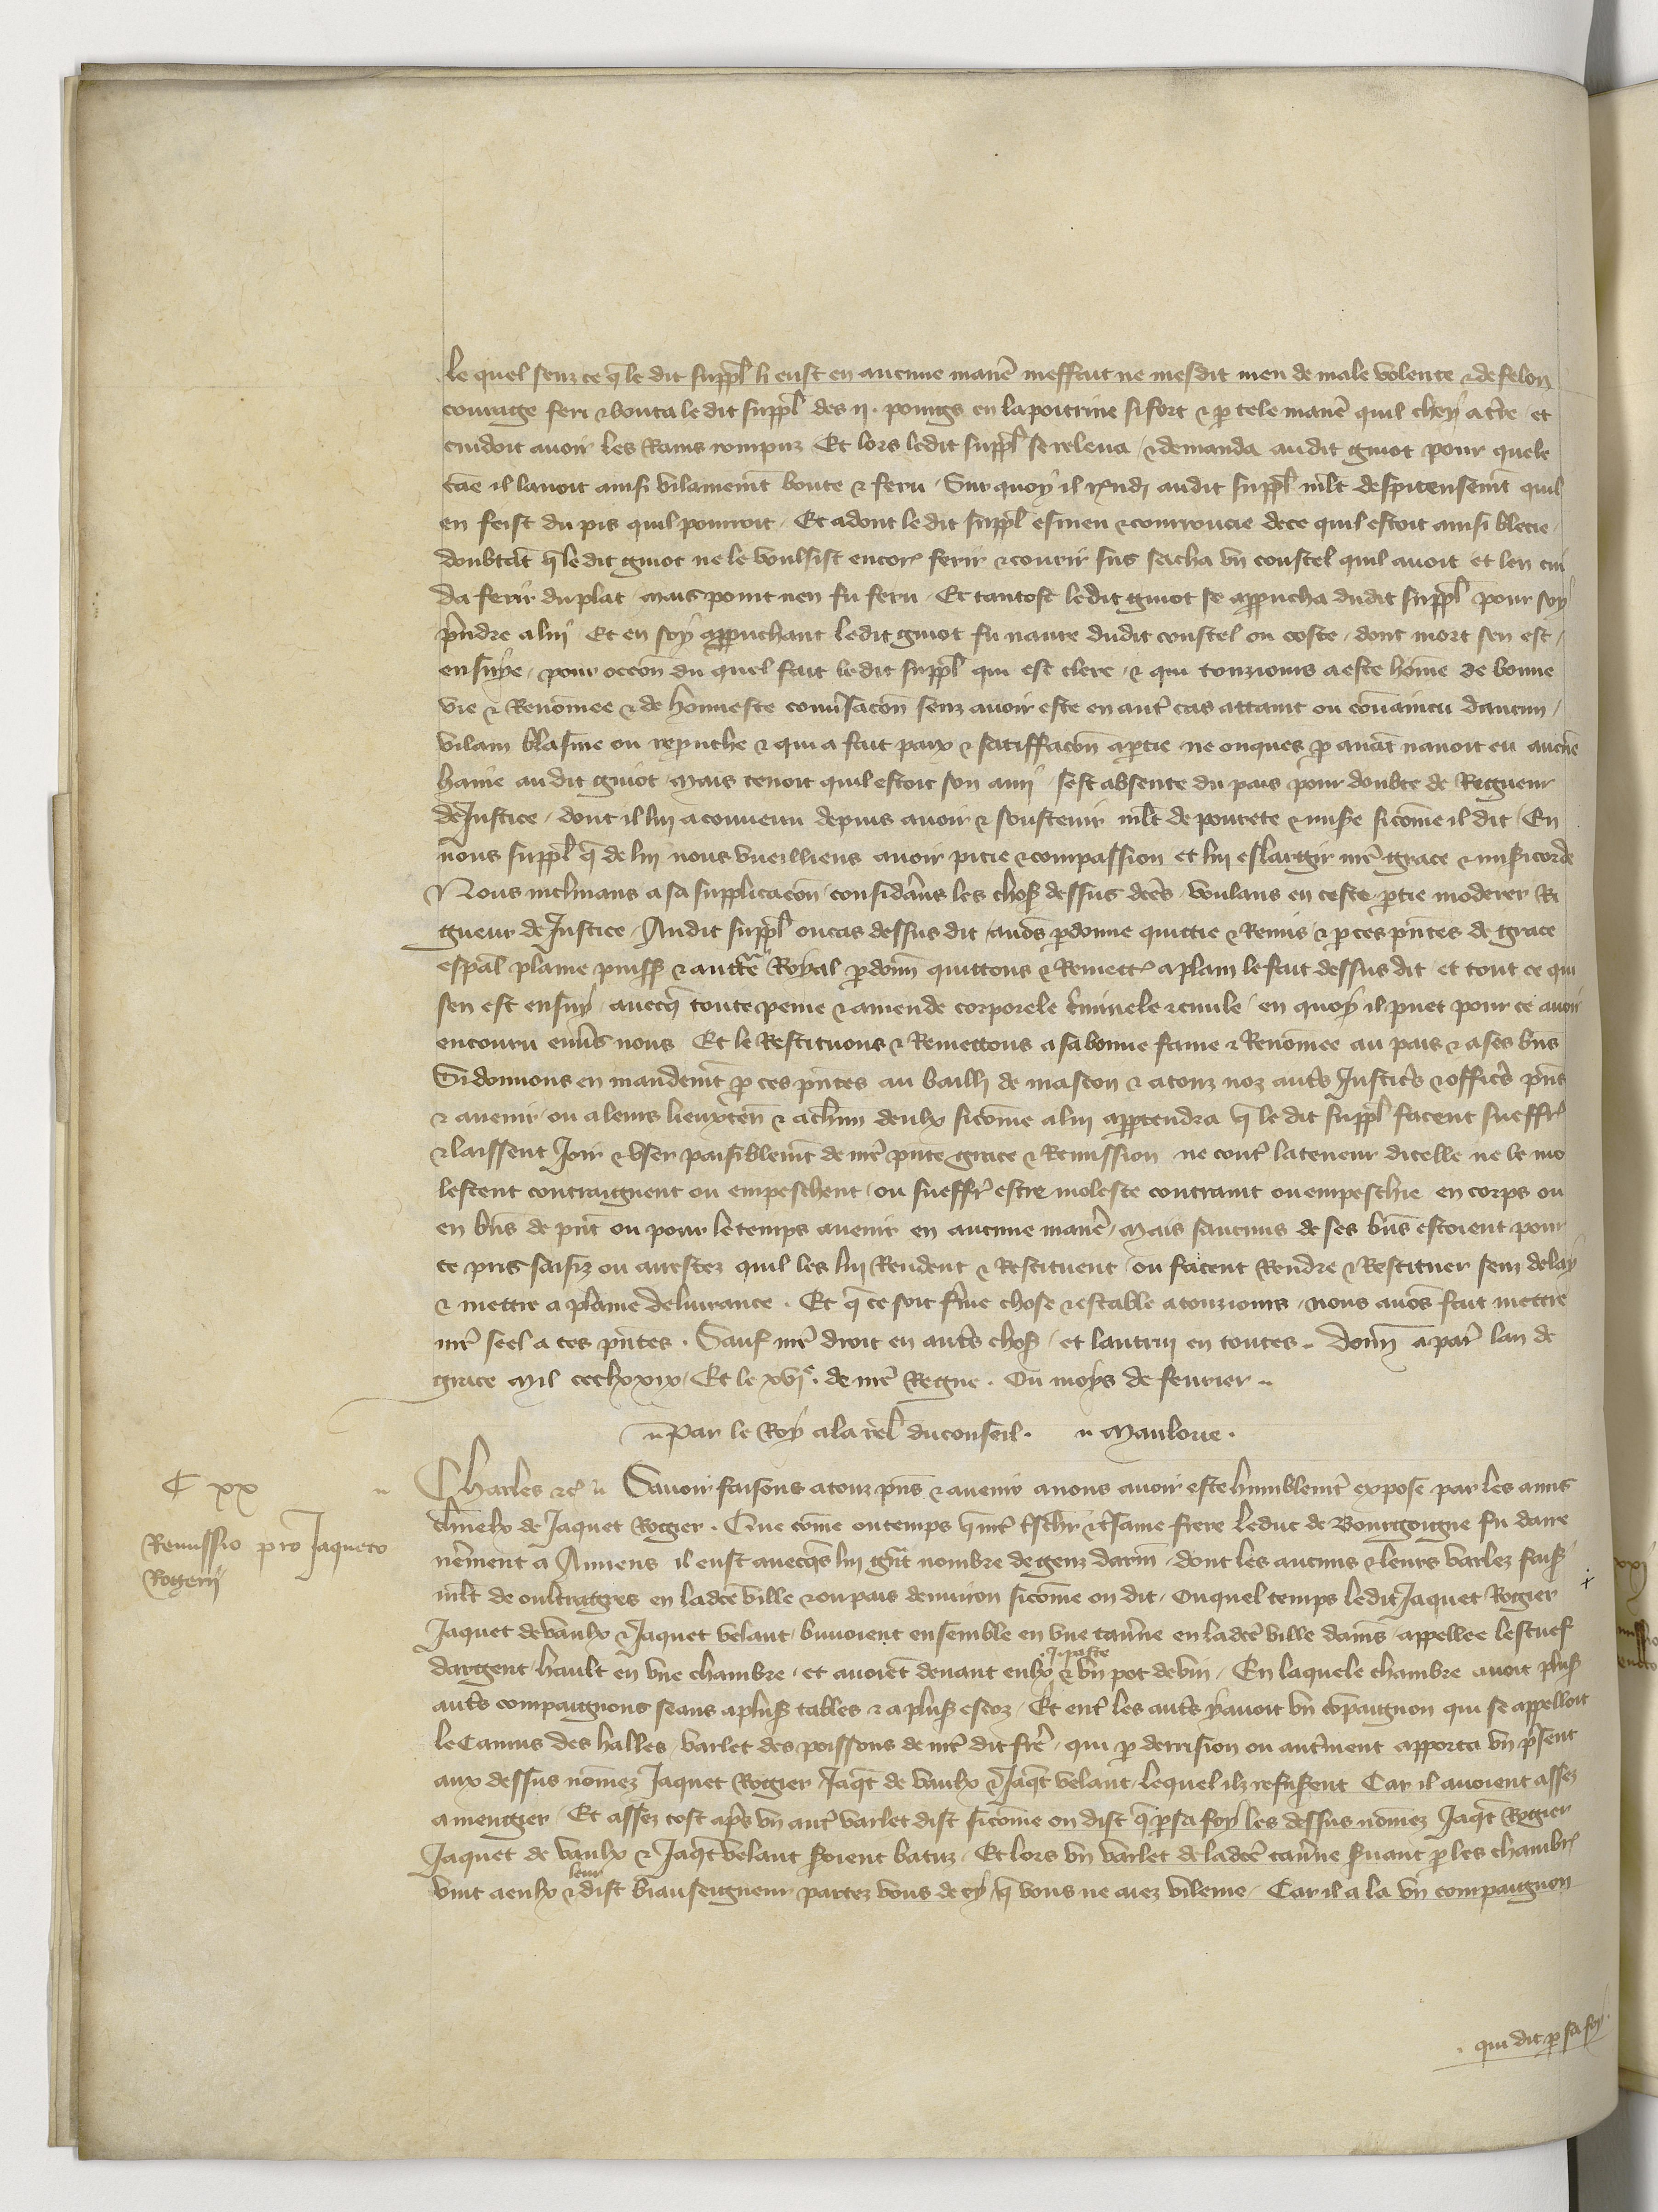 le quel senz ce q̃ le dit suppl̃ li eust en aucune manẽ meffait ne mesdit meu de male volente & de felon
courage feri & bouta le dit suppl̃ des ij. poings en la poitrine si fort & p tele manẽ quil chey a t̃re et
cuidoit avoir les Rains rompuz Et lors ledit suppl̃ se releva & demanda audit guiot pour quele
cãe il lavoit ainsi vilainemt̃ boute & feru. Sur quoy il rñdi audit suppl̃ mlt̃ despiteusemt̃ quil
en feist du pis quil pourroit. Et adont le dit suppl̃ esmeu & courroucie de ce quil estoit ainsi blecie
doubtãt q̃ le dit guiot ne le voulsist encor ferir & courir sus sacha vn coustel quil avoit et len cui
da ferir du plat mais point nen fu feru. Et tantost ledit guiot se approucha dudit suppl̃ pour soy
p̃ndre a lui Et en soy approuchant ledit guiot fu navre dudit coustel ou coste dont mort sen est
ensuye. pour occoñ du quel fait le dit suppl̃ qui est clerc & qui touzjours a este hõme de bonne
vie & Renõmee & de honneste conũsacoñ senz avoir este en aut̃ cas attaint ou cõvaincu daucun
vilain blasme ou reprouche & qui a fait paix & satiffacoñ a ptie ne onques p avãt navoit eu aucũe
haine au dit guiot mais tenoit quil estoit son ami sest absente du pais pour doubte de Rigueur
de Justice. dont il lui a convenu depuis avoir & soustenir mlt̃ de povrete & misẽ sicõme il dit. En
nous suppl̃ q̃ de lui nous vueilliens avoir pitie & compassion et lui eslargir nr̃e grace & misicorde
Nous inclinans a sa supplicacoñ considãns les chos dessus dc̃es voulans en ceste ptie moderer Ri
gueur de Justice. Audit suppl̃ ou cas dessus dit avõs pdonne quittie & Remis & p ces pñtes de grace
esp̃al plaine puiss & auctẽ Royal pdonñ quittons & Remett̃ a plain le fait dessus dit et tout ce qui
sen est ensuy. avecq̃ toute peine & amende corporele c̃minele & civile en quoy il puet pour ce avoir
encouru env̂s nous Et le Restituons & Remettons a sa bonne fame & Renõmee au pais & a ses bñs
Si donnons en mandemt̃ p ces pñtes au bailli de mascon & a touz noz aut̃s Justicĩs & officĩs pñs
& avenir ou a leurs lieuxteñ & a ch̃un deulx sicõme a lui apptendra q̃ le dit suppl̃ facent sueffr̃
& laissent Joir & vser paisiblemt̃ de nr̃e pñte grace & Remission ne cont̃ la teneur dicelle ne le mo
lestent contraignent ou empeschent ou sueffr̃ estre moleste contraint ou empeschie en corps ou
en bñs de pñt ou pour le temps avenir en aucune manẽ. mais saucuns de ses bñs estoient pour
ce pris saisiz ou arrestez quil les lui Rendent & Restituent ou facent Rendre & Restituer senz delay
& mettre a plaine delivrance. Et q̃ ce soit f̃me chose & estable a touzjours. nous avõs fait mettre
nr̃e seel a ces pñtes. Sauf nr̃e droit en aut̃s chos et lautrui en toutes. Donñ a par̃ lan de
grace Mil ccclxxix Et le xvje. de nr̃e Regne. Ou moys de fevrier.
Par le Roy a la rel̃ du conseil. Maulone.
C xx
Remissio pro Jaqueto
Rogerii
Charles &c̃ Savoir faisons a touz pñs & avenir a nous avoir este humblemt̃ expose par les amis
charnelx de Jaquet Rogier. Que cõme ou temps q̃ nr̃e t̃schr̃ & t̃same frere le duc de Bourgoigne fu dare
nẽment a Amiens il eust avecq̃s lui gñt nombre de genz darm̃ dont les aucuns & leurs varlez fais
mlt̃ de oultrages en ladc̃e ville & ou pais denviron sicõme on dit. Ouquel temps ledit Jaquet Rogier
Jaquet de vaulx & Jaquet velaut buvoient ensemble en vne tav̂ne en ladc̃e ville damĩs appellee lestuef
dargent hault en vne chambre. et avoiẽt devant eulx j. paste & vn pot de vin. En laquele chambre avoit plus
aut̃s compaignons seans a plus tables & a plus escoz. Et ent̃ les aut̃s y avoit vn cõpaignon qui se appelloit
le Camus des halles varlet des poissons de nr̃e dit frẽ. qui p derrision ou aut̃ment apporta vn p̃sent
aux dessus nõmez Jaquet Rogier Jaq̃t de vaulx & Jaq̃t velaut lequel ilz refusẽnt Car il avoient assez
a mengier. Et assez tost ap̃s vn aut̃ varlet dist sicõme on dist q̃ p sa foy les dessus nõmez Jaq̃t Rogier
Jaquet de vaulx & Jaq̃t velaut seroient batuz. Et lors vn varlet de ladc̃e tav̂ne suant p les chambr̃
vint a eulx & leur dist biauseigneur partez vous de cy q̃ vous ne aiez vilenie. Car il a la vn compaignon
qui dit p sa foy